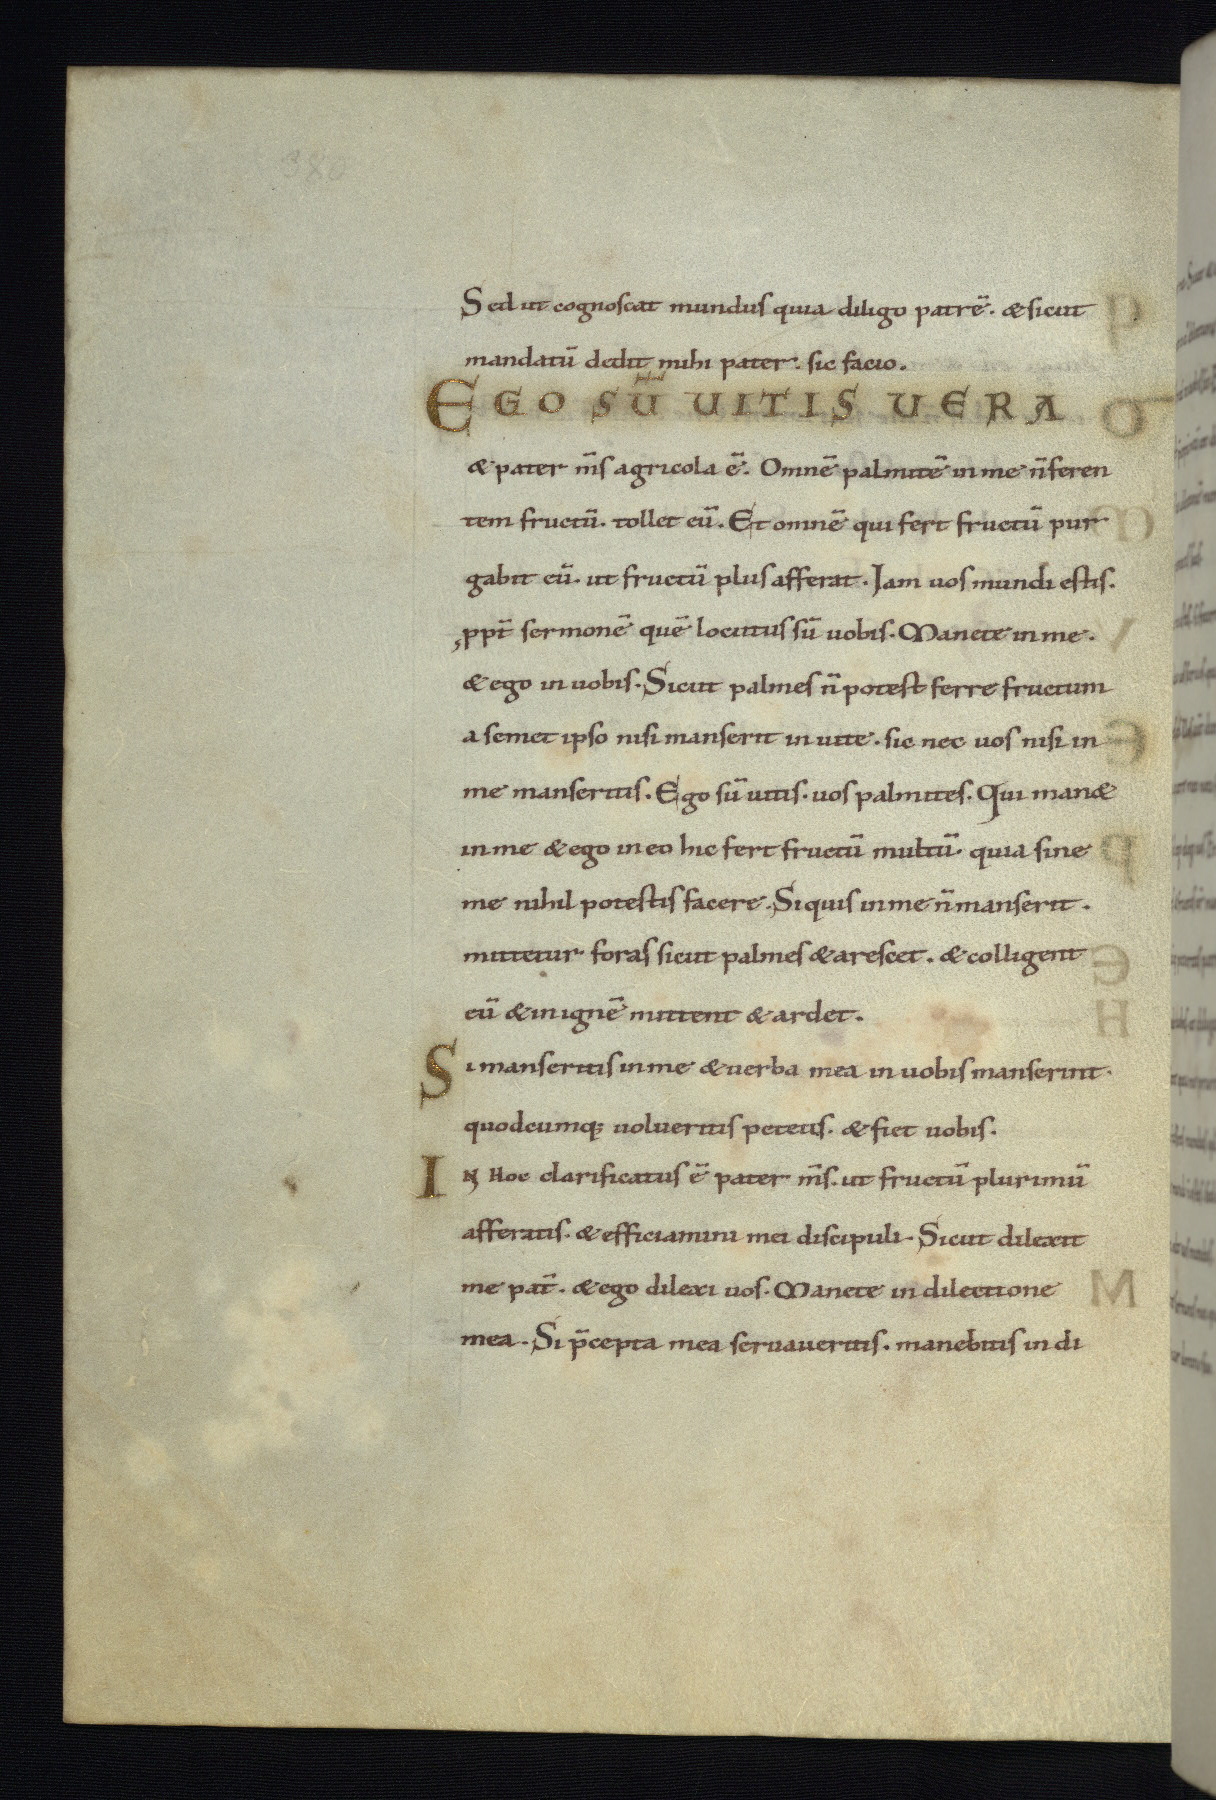 380
Sed ut cognoscat mundus quia diligo patrē. & sicut
mandatū dedit mihi pater. sic facio.
EGO SŪ UITIS UERA
& pater m̄s agricola ē. Omnē palmitē in me n̄ feren
tem fructū. tollet eū. Et omnē qui fert fructū pur
gabit eū. ut fructū plus afferat. Jam uos mundi estis.
ꝓpt̄ sermonē quē locutus sū uobis. Manete in me.
& ego in uobis. Sicut palmes n̄ potest ferre fructum
a semet ipso nisi manserit in uite. sic nec uos nisi in
me manseritis. Ego sū uitis. uos palmites. Qui man&
in me & ego in eo hic fert fructū multū. quia sine
me nihil potestis facere. Si quis in me n̄ manserit.
mittetur foras sicut palmes & arescet. & colligent
eū & in ignē mittent & ardet.
Si manseritis in me & uerba mea in uobis manserint.
quodcumq; uolueritis petetis. & fiet uobis.
IN Hoc clarificatus ē pater m̄s. ut fructū plurimū
afferatis. & efficiamini mei discipuli. Sicut dilexit
me pat̄. & ego dilexi uos. Manete in dilectione
mea. Si p̄cepta mea seruaueritis. manebitis in di